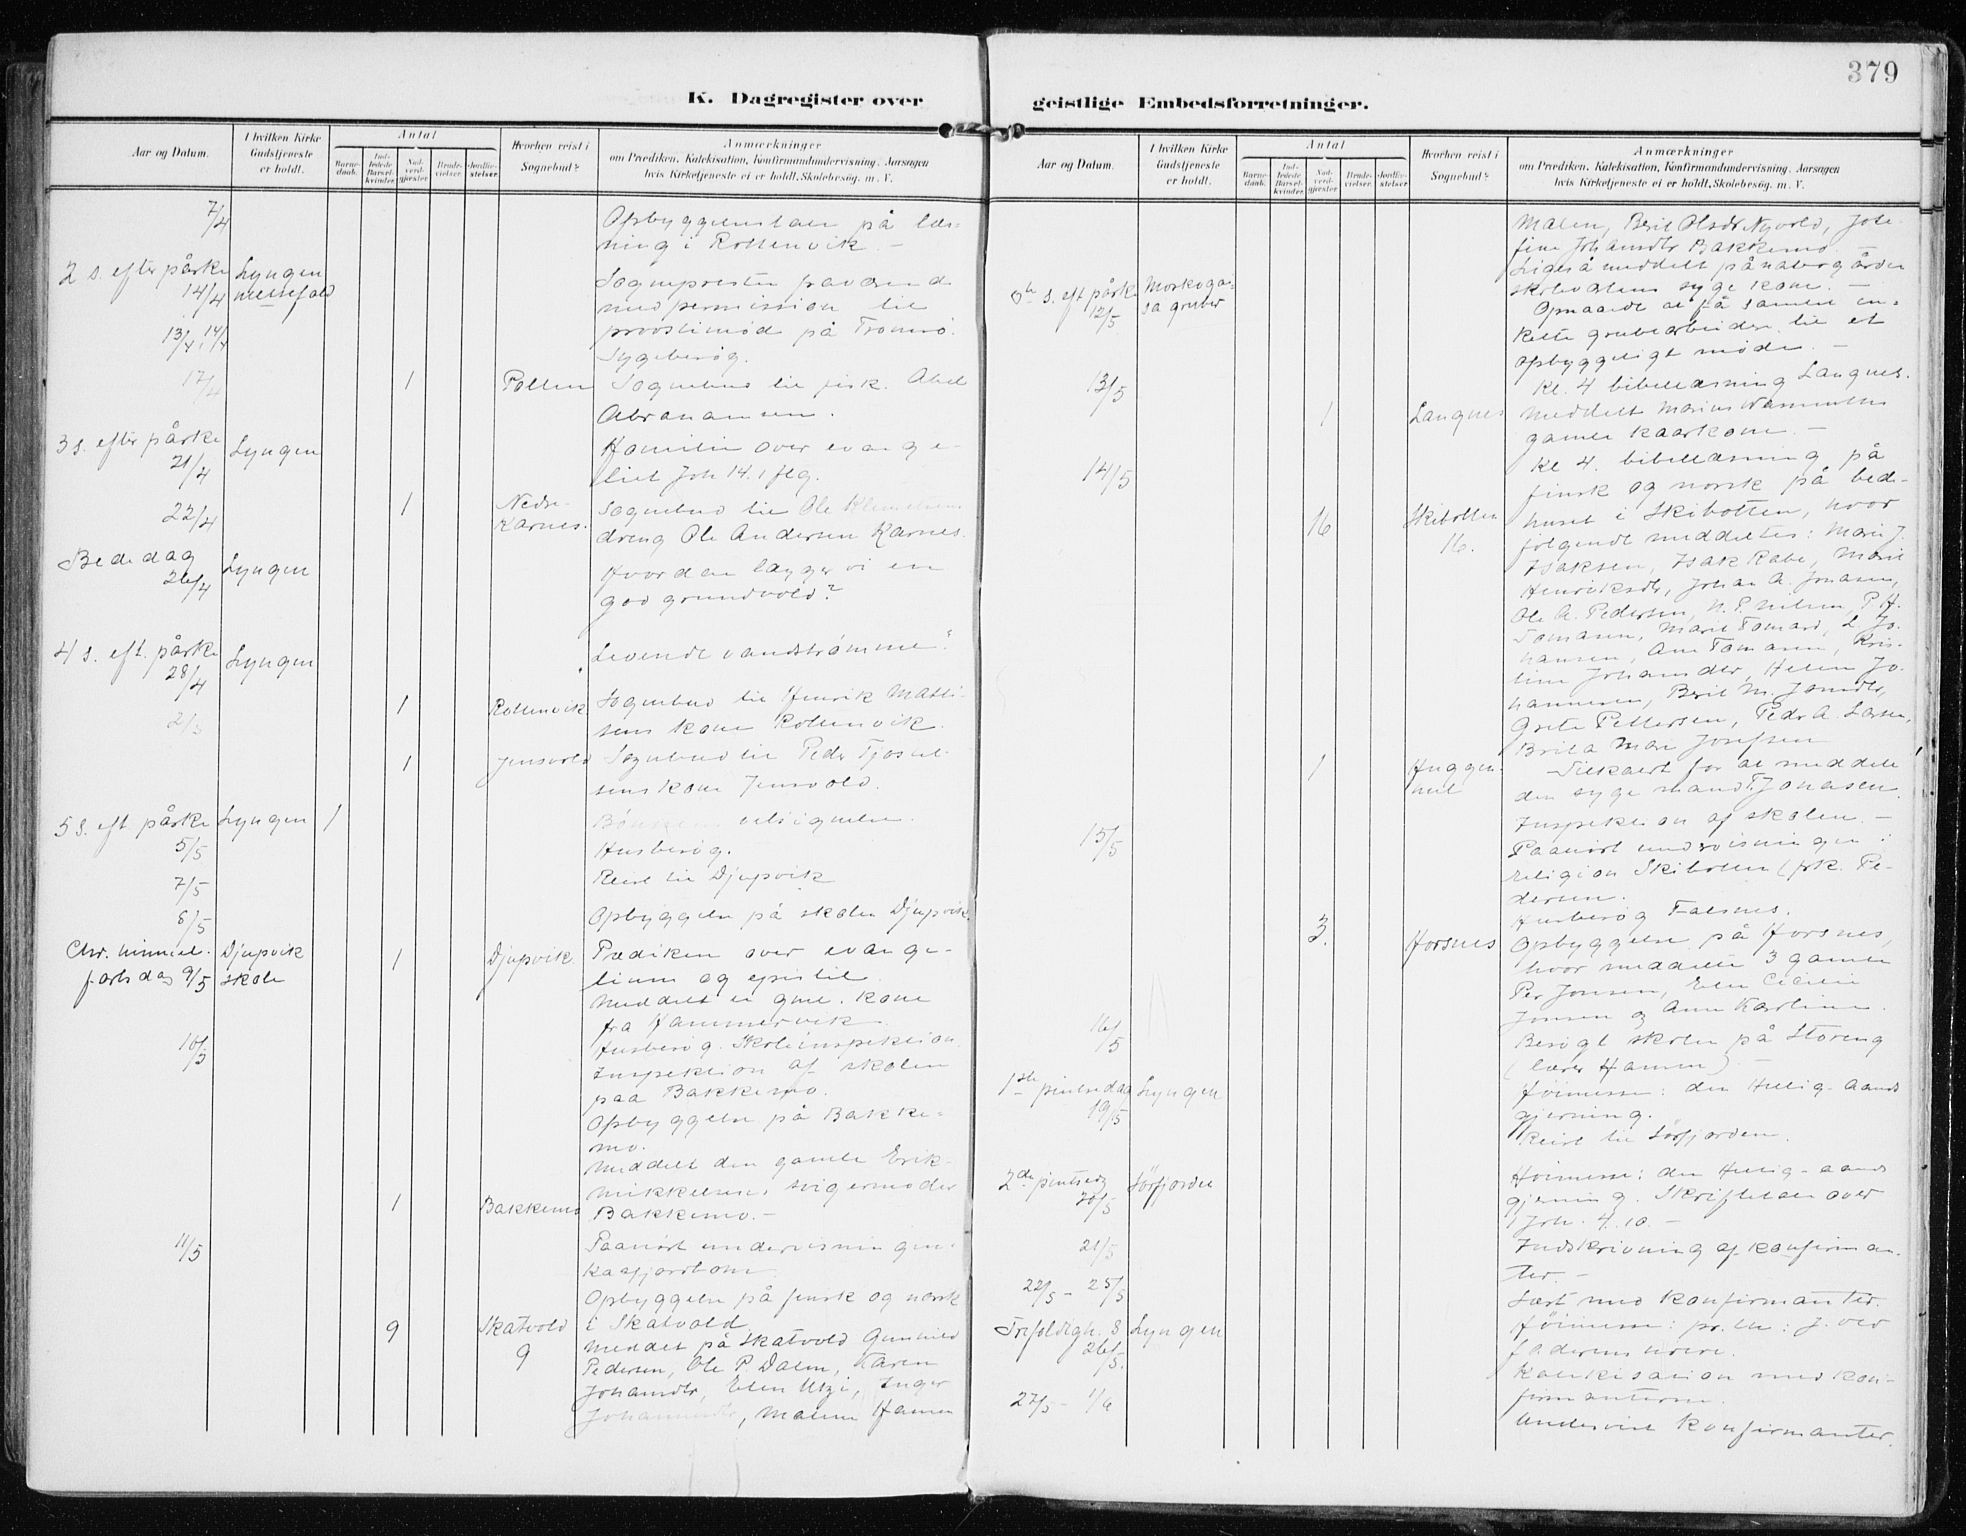 379
K. Dagregister over
geistlige Embedsforretninger.
Aar og Datum.
I hvilken Kirke Gudstjeneste er holdt.
Antal
Barnedaab.
Indledede Barselkvinder.
Nadverdgjæster.
Brudevielser.
Jordfæstelser.
Hvorhen reist i Sognebud?
Anmærkninger
om Prædiken, Katekisation, Konfirmandundervisning, Aarsagen
hvis Kirketjeneste ei er holdt, Skolebesøg. m. V.
7/4
Opbyggelsestale på læs-
ning i Rottenvik. -
2 s. efter påske Lyngen
14/4 messefald
Sognepresten fraværende
med permission til
13/4, 14/4 provstimöd på Tromsö.
Sygebesög.
17/4 1 Pollen Sognebud til fisk. Abel
Abrahamsen.
3 s. efter påske Lyngen Homilie over evange-
21/4 liet Joh 14.1 flg.
22/4 1 Nedre- Sognebud til Ole
Karnes. dreng Ole Andersen Karnes.
Bededag Lyngen Hvordan lægger vi en
26/4 god grundvold?
4 s. eft. påske Lyngen Levende vandströmme?
28/4
2/5 1 Rottenvik Sognebud til Henrik Matti-
sens kone Rottenvik.
1 Jensvold Sognebud til Peder
sens kone Jensvold.
5 s. eft påske Lyngen 1 velsignelse.
5/5 Husbesög.
7/5 Reist til Djupvik
8/5 Opbyggelse på skolen Djupvik
Chr. himmel- Djupvik 1 Djupvik Prædiken over evange-
fartsdag 9/5 skole lium og epistel.
Meddelt ei gml. kone
fra Hammervik.
10/5 Husbesög. Skoleinspektion
Inspektion af skolen
paa Bakkemo.
Opbyggelse på Bakke-
mo.
Meddelt den gamle Erik
Mikkelsens svigermoder
1 Bakkemo Bakkemo. -
11/5 Paahört undervisningen
Kaafjordbotn.
Opbyggelse på finsk og norsk
9 Skatvold i Skatvold
9 Meddelt på Skatvold Gunhild
Pedersen, Ole P Dalen, Karen
Johansdtr, Elen Utzi, Inger
Malene Hansen
Aar og Datum.
I hvilken Kirke Gudstjeneste er holdt.
Antal
Barnedaab.
Indledede Barselkvinder.
Nadverdgjæster.
Brudevielser.
Jordfæstelser.
Hvorhen reist i Sognebud?
Anmærkninger
om Prædiken, Katekisation, Konfirmandundervisning, Aarsagen
hvis Kirketjeneste ei er holdt, Skolebesøg. m. V.
Malen, Berit Olsdr Nyvold, Jose-
fine Johansdtr Bakkemo. -
Ligeså meddelt på nabogården
syge kone. -
s. eft påske Moskogai-
12/5 sa gruber
Opnaaede at få samlet en-
kelte grubearbeidere til et
opbyggeligt möde. -
13/5 Kl. 4 bibellæsning Langnes.
1 Langnes Meddelt Marius
gamle kaarkone. -
14/5 Kl 4. bibellæsning på
finsk og norsk på bede-
16 Skibotten huset i Skibotten, hvor
16. fölgende meddeltes: Marie J.
Isaksen, Isak Rabe, Marie
Henriksdtr, Johan A. Jonasen,
Ole A. Pedersen, N. P. Nilsen, P. H.
Tomasen, Marit L Jo-
hansen, Ane Tomasen, Kris-
tine Johansdtr, Helene Jo-
hannesen, Berit M. Jonsdtr,
Grete Pettersen, Peder A. Larsen,
Brita Mari Josefsen
1 Tilkaldt for at meddele
den syge mand T. Jonasen.
15/5 Inspektion af skolen. -
Paahört undervisningen i
religion Skibotten (frk. Pe-
dersen.
Husbesög Falsnes.
3. Horsnes Opbyggelse på Horsnes,
hvor meddeltes 3 gamle
Per Jonsen, Elen Cicilie
Jonsen og Anne Karoline.
16/5 Besögt skolen på Storeng
(lærer Hansen)
1ste pintsedag Lyngen Höimesse: den Hellig-aands
19/5 gjerning.
Reist til Sörfjorden.
2den pintsedg Sörfjorden Höimesse: den Hellig-aands
20/5 gjerning. Skriftetale over
Joh. 4.10. -
21/5 Indskrivning af konfirman-
ter. -
22/5 - 25/5 Læst med konfirmanter.
Trefoldigh. s Lyngen Höimesse:
26/5. faderens
Katekisation med kon-
firmanterne.
27/5 - 1/6 Undervist konfirmanter.